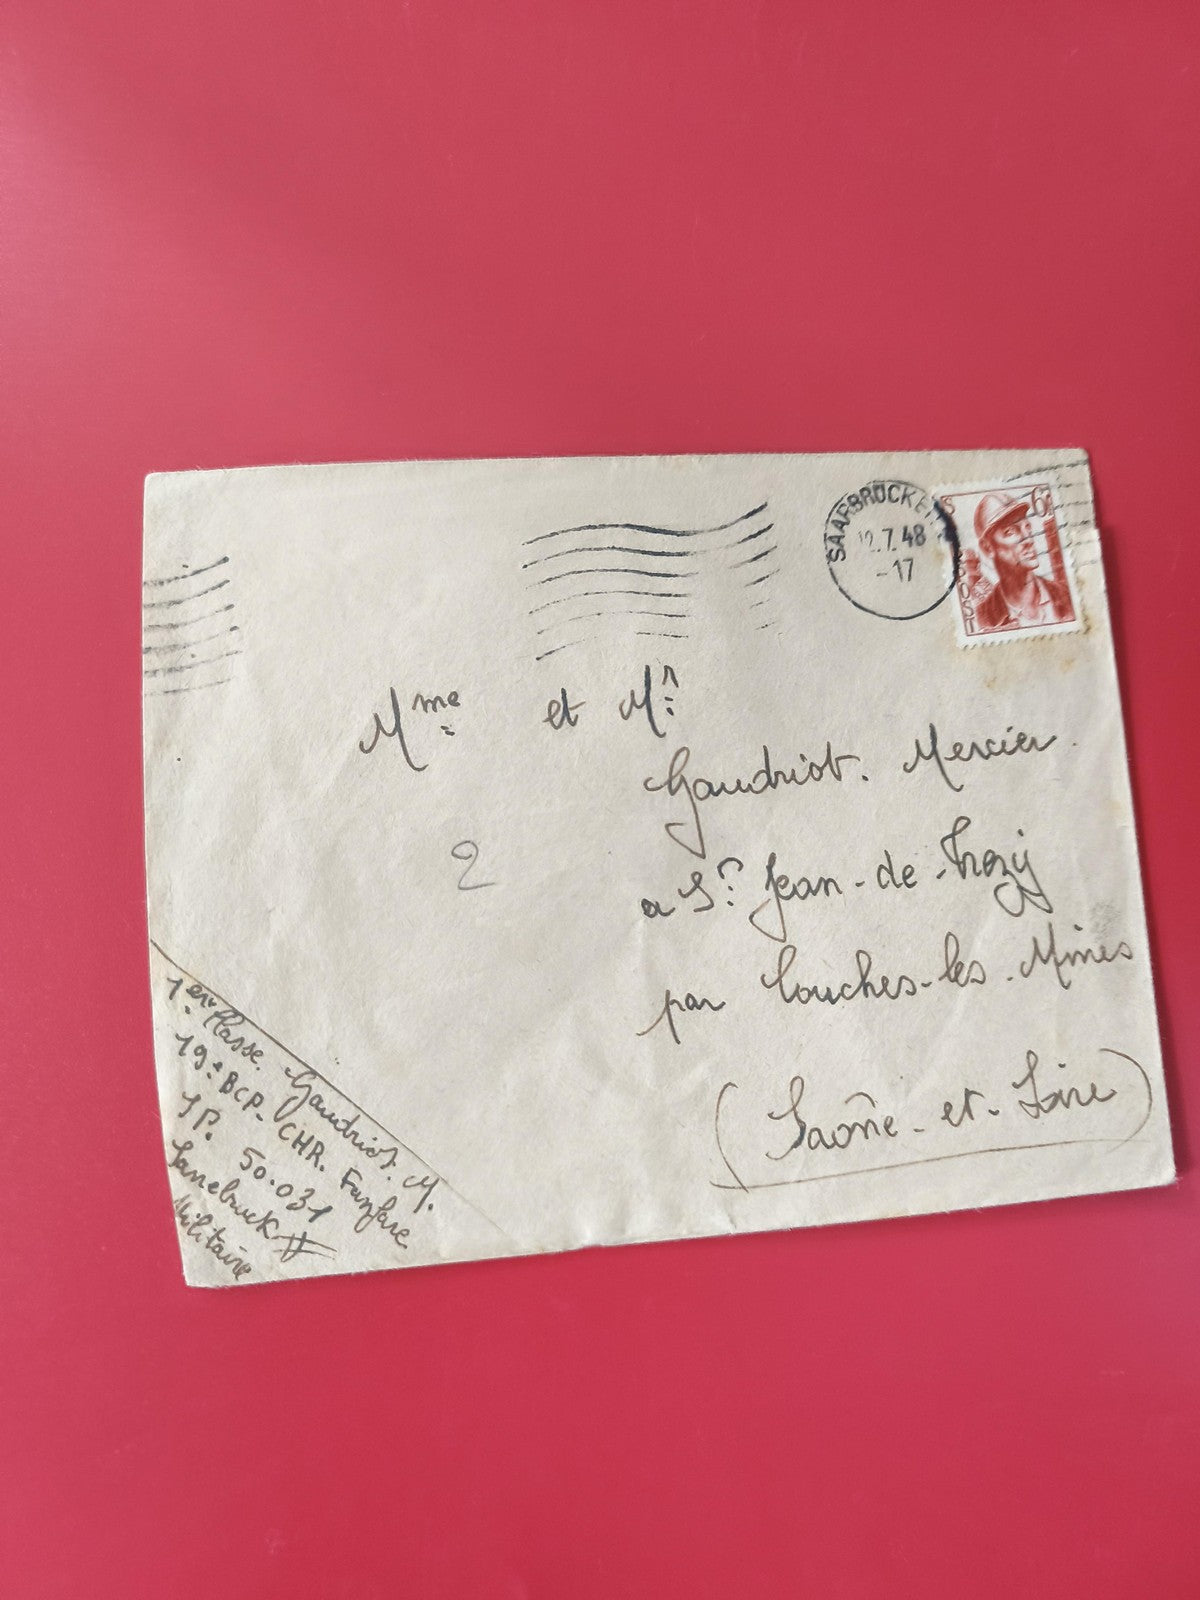 SAARBRÜCKE
2.7.48
-17
6F
POST
Mme et Mr
Gaudriot. Mercier
a St Jean-de-Trezy
par Couches-les-Mines
(Saône-et-Loire)
2
1ere Classe. Gaudriot. M.
19e BCP. CHR. Fanfare
SP. 50.031
Sarrebruck
Militaire